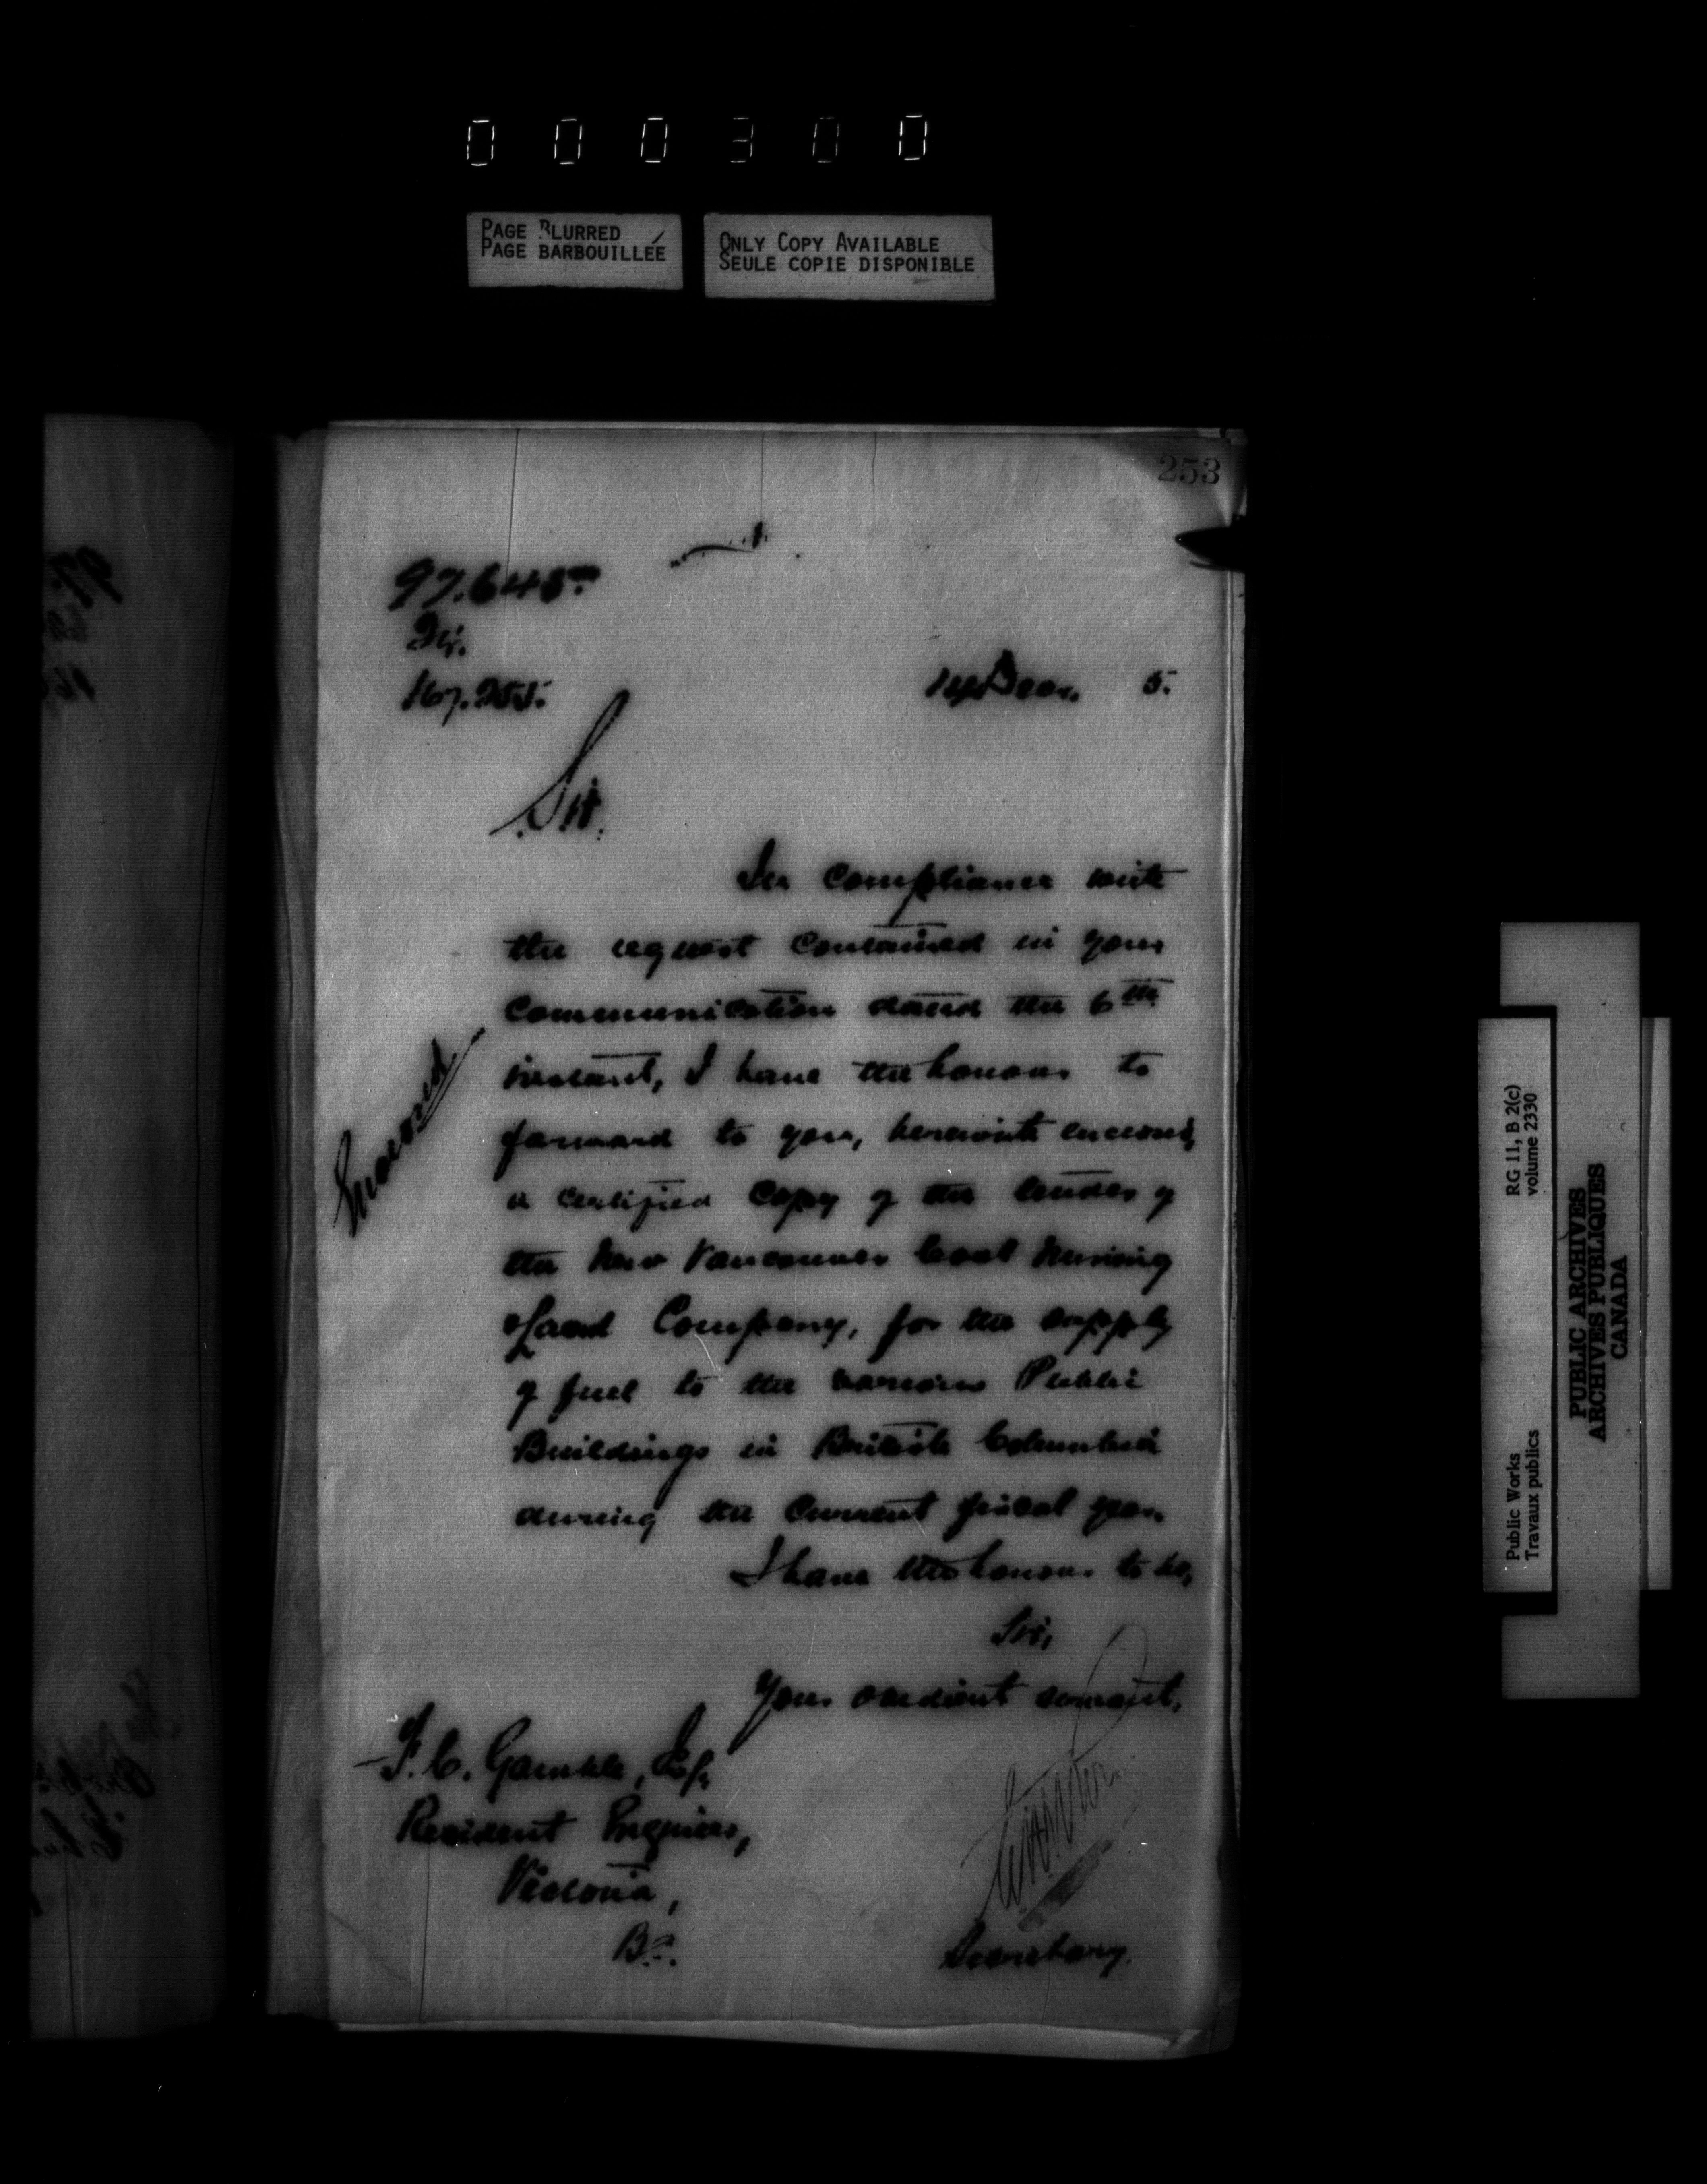 0 0 0 3 0 0
PAGE BLURRED
PAGE BARBOUILLÉE
ONLY COPY AVAILABLE
SEULE COPIE DISPONIBLE
253
97.645
167.255.
14 Decr. 5.
Sir,
In compliance with
the request contained in your
communication dated the 6th
instant, I have the honour to
forward to you, herewith enclosed,
a certified copy of the tender of
the New Vancouver Coal Mining
& Land Company, for the supply
of fuel to the various Public
Buildings in British Columbia
during the current fiscal year.
I have the honour to be,
Sir,
Your obedient servant,
F. C. Gamble, Esq.
Resident Engineer,
Victoria,
B.C.
Secretary.
Public Works
Travaux publics
RG 11, B 2(c)
volume 2330
PUBLIC ARCHIVES
ARCHIVES PUBLIQUES
CANADA